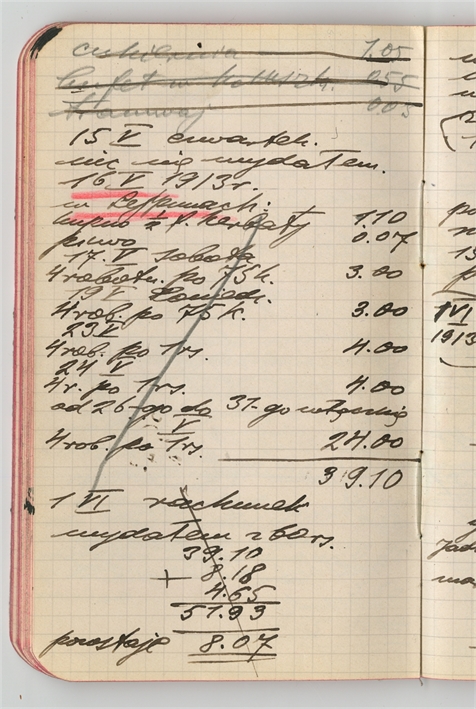 cukiernia 1.05
bufet w 0.55
tramwaj 0.05
15 V czwartek.
nic nie wydałem.
16 V 1913 r.
w :
kupno ½ f. herbaty 1.10
piwo 0.07
17. V sobota
4 robotn. po 75 k. 3.00
19 V Poniedz.
4 rob. po 75 k. 3.00
23 V
4 rob. po 1 rs. 4.00
24 V
4 r. po 1 rs. 4.00
od 26-go do 31-go włącznie
V
4 rob. po 1 rs. 24.00
39.10
1 VI rachunek
wydałem z 60 rs.
39.10
+ 8.18
4.65
51.93
pozostaje 8.07
1 VI
1913